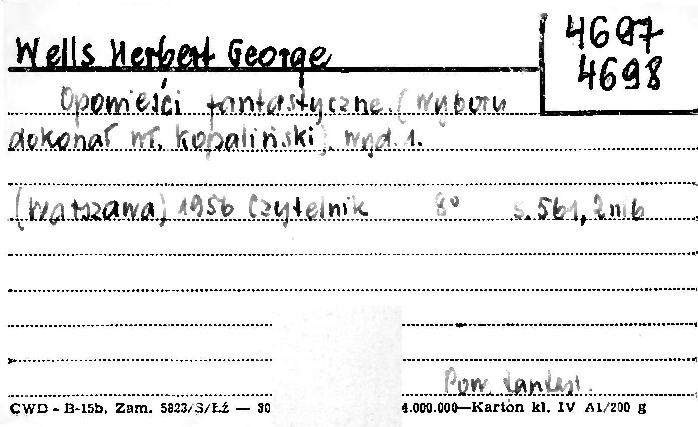 Wells Herbert George
4697
4698
Opowieści fantastyczne. (Wyboru
dokonał Wł. Kopaliński). Wyd. 1.
(Warszawa) 1956 Czytelnik 8° s. 561, 2 nlb
Pow. fantast.
CWD - B-15b, Zam. 5823/S/Łź — 30 4.000.000—Karton kl. IV A1/200 g